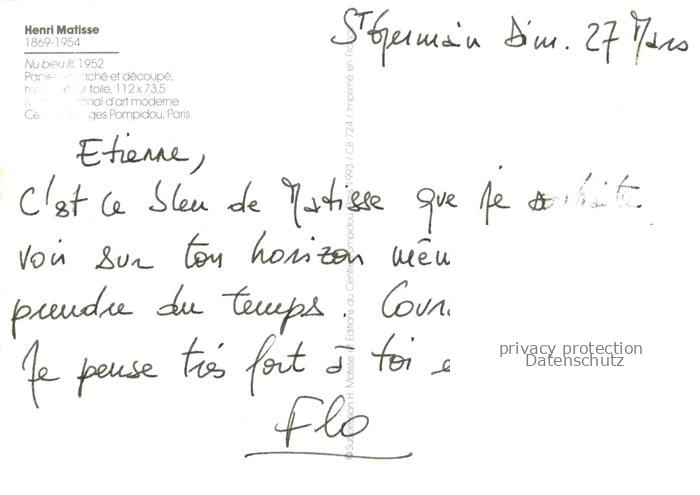 Henri Matisse
1869-1954
Nu bleu III, 1952
ché et découpé,
toile, 112 x 73,5
nal d'art moderne
ges Pompidou, Paris
St Germain Dim. 27 Mars
Etienne,
C'est ce bleu de Matisse que je
voir sur ton horizon
prendre du temps.
Je pense très fort à toi
Flo
© Succession H. Matisse Editions du Centre Pompidou 1993 / CB 724 / Imprimé en
privacy protection
Datenschutz